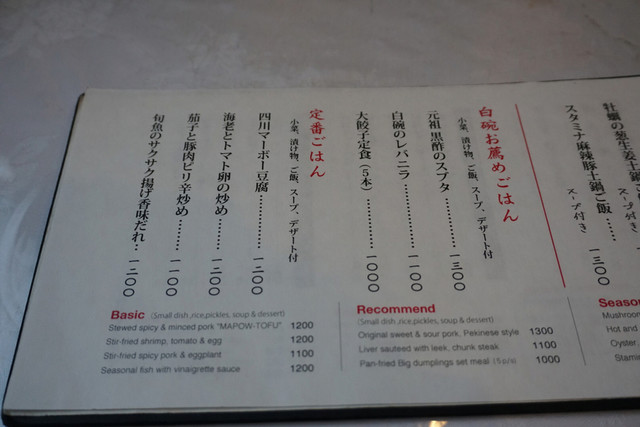 牡蠣の葱生姜土鍋
スープ付き
スタミナ麻辣豚土鍋ご飯……
スープ付き
一三〇〇
白碗お薦めごはん
小菜、漬け物、ご飯、スープ、デザート付
元祖 黒酢のスブタ………… 一三〇〇
白碗のレバニラ………… 一一〇〇
大餃子定食(5本)………… 一〇〇〇
定番ごはん
小菜、漬け物、ご飯、スープ、デザート付
四川マーボー豆腐………… 一二〇〇
海老とトマト卵の炒め…… 一二〇〇
茄子と豚肉ピリ辛炒め…… 一一〇〇
旬魚のサクサク揚げ香味だれ… 一二〇〇
Basic (Small dish ,rice,pickles, soup & dessert)
Stewed spicy & minced pork "MAPOW-TOFU" 1200
Stir-fried shrimp, tomato & egg 1200
Stir-fried spicy pork & eggplant 1100
Seasonal fish with vinaigrette sauce 1200
Recommend
(Small dish ,rice,pickles, soup & dessert)
Original sweet & sour pork, Pekinese style 1300
Liver sauteed with leek, chunk steak 1100
Pan-fried Big dumplings set meal (5pis) 1000
Seaso
Mushroom
Hot and
Oyster
Stami